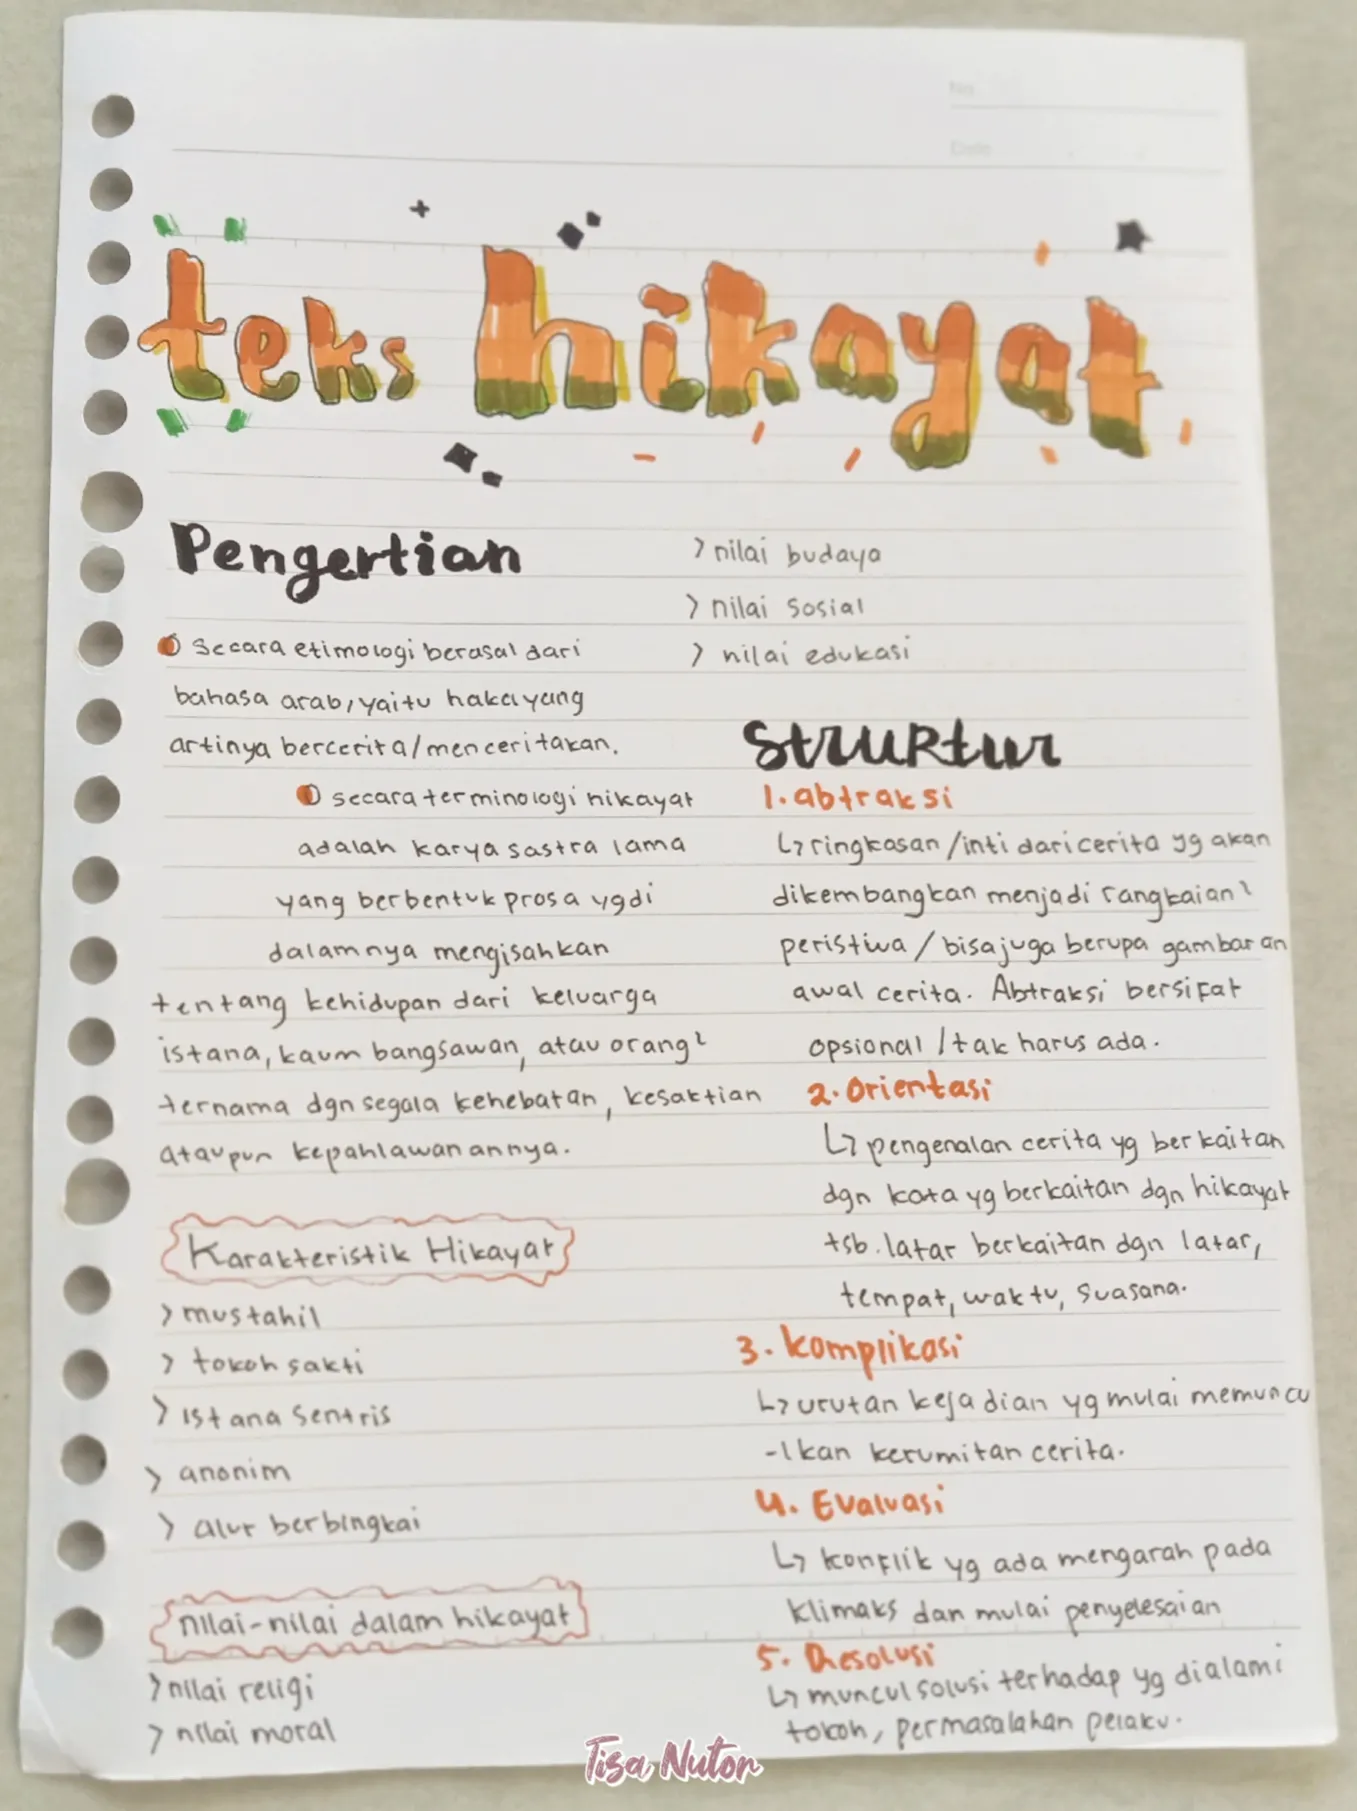 No.
Date
teks hikayat
Pengertian
secara etimologi berasal dari
bahasa arab, yaitu haka yang
artinya bercerita/menceritakan.
secara terminologi hikayat
adalah karya sastra lama
yang berbentuk prosa yg di
dalamnya mengisahkan
tentang kehidupan dari keluarga
istana, kaum bangsawan, atau orang²
ternama dgn segala kehebatan, kesaktian
ataupun kepahlawanannya.
Karakteristik Hikayat
> mustahil
> tokoh sakti
> istana sentris
> anonim
> alur berbingkai
nilai-nilai dalam hikayat
> nilai religi
> nilai moral
> nilai budaya
> nilai sosial
> nilai edukasi
Struktur
1. abtraksi
↳ ringkasan/inti dari cerita yg akan
dikembangkan menjadi rangkaian²
peristiwa/bisa juga berupa gambaran
awal cerita. Abtraksi bersifat
opsional/tak harus ada.
2. Orientasi
↳ pengenalan cerita yg berkaitan
dgn kata yg berkaitan dgn hikayat
tsb. latar berkaitan dgn latar,
tempat, waktu, suasana.
3. Komplikasi
↳ urutan kejadian yg mulai memuncu
-lkan kerumitan cerita.
4. Evaluasi
↳ konflik yg ada mengarah pada
klimaks dan mulai penyelesaian
5. Resolusi
↳ muncul solusi terhadap yg dialami
tokoh, permasalahan pelaku.
Tisa Nutor